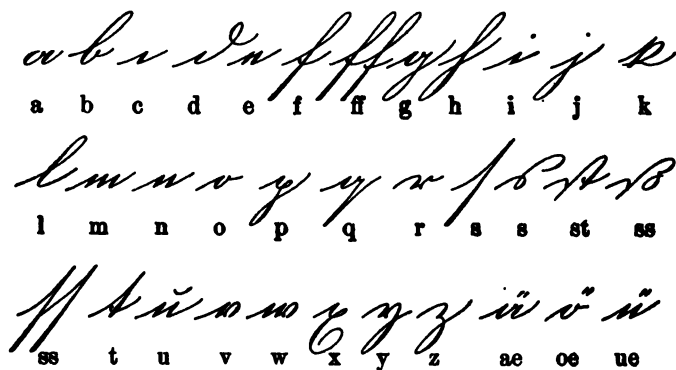 a b c d e f ff g h i j k
a b c d e f ff g h i j k
l m n o p q r ſ s st ß
l m n o p q r s s st ss
ſſ t u v w x y z ä ö ü
ss t u v w x y z ae oe ue